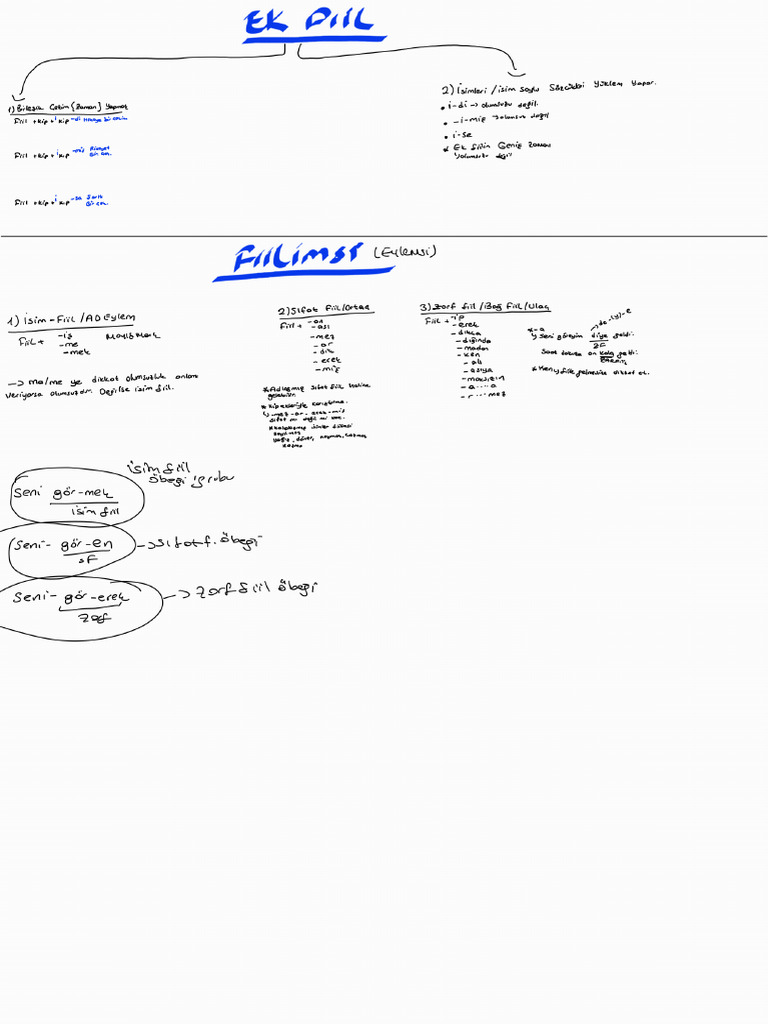 EK FİİL
1) Bileşik Çekim (Zaman) Yapmak
Fiil + kip + i kip -di Hikaye Bi çekim
Fiil + kip + i kip -miş Rivayet
Bir çek.
Fiil + kip + i kip -sa Şartlı
Bir çek.
2) İsimleri / isim soylu sözcükleri yüklem yapar.
• i-di → olumsuzu değil.
• -i-miş → olumsuz değil
• i-se
* Ek fiilin Geniş zamanı
olumsuzu değil
FİİLİMSİ (Eylemsi)
1) isim-Fiil / AD Eylem
Fiil + -iş
-me
-mek
Mayışmak
→ ma/me ye dikkat olumsuzluk anlamı
veriyorsa olumsuzdur. Değilse isim fiil.
2) Sıfat Fiil/Ortaç
Fiil + -an
-ası
-mez
-ar
-dik
-ecek
-miş
* Adlaşmış sıfat fiil haline
gelebilir.
* Kip ekleriyle karıştırma.
↳ -mez -ar -ecek -miş
sıfat mı değil mi bak.
3) Zarf fiil / Bağ Fiil / Ulaç
Fiil + -ip
-erek
-dikçe
-diğinde
-madan
-ken
-alı
-asıya
-maksızın
-a....a
-r....mez
x-a
↳ seni göreyim diye geldi
ZF
de-(y)-e
Saat dokuza on kala gelti.
seni gör-mek
isim fiil
isim fiil
öbeği grubu
seni- gör-en
SF
→ sıfat f. öbeği
seni- gör-erek
zarf
→ zarf fiil öbeği